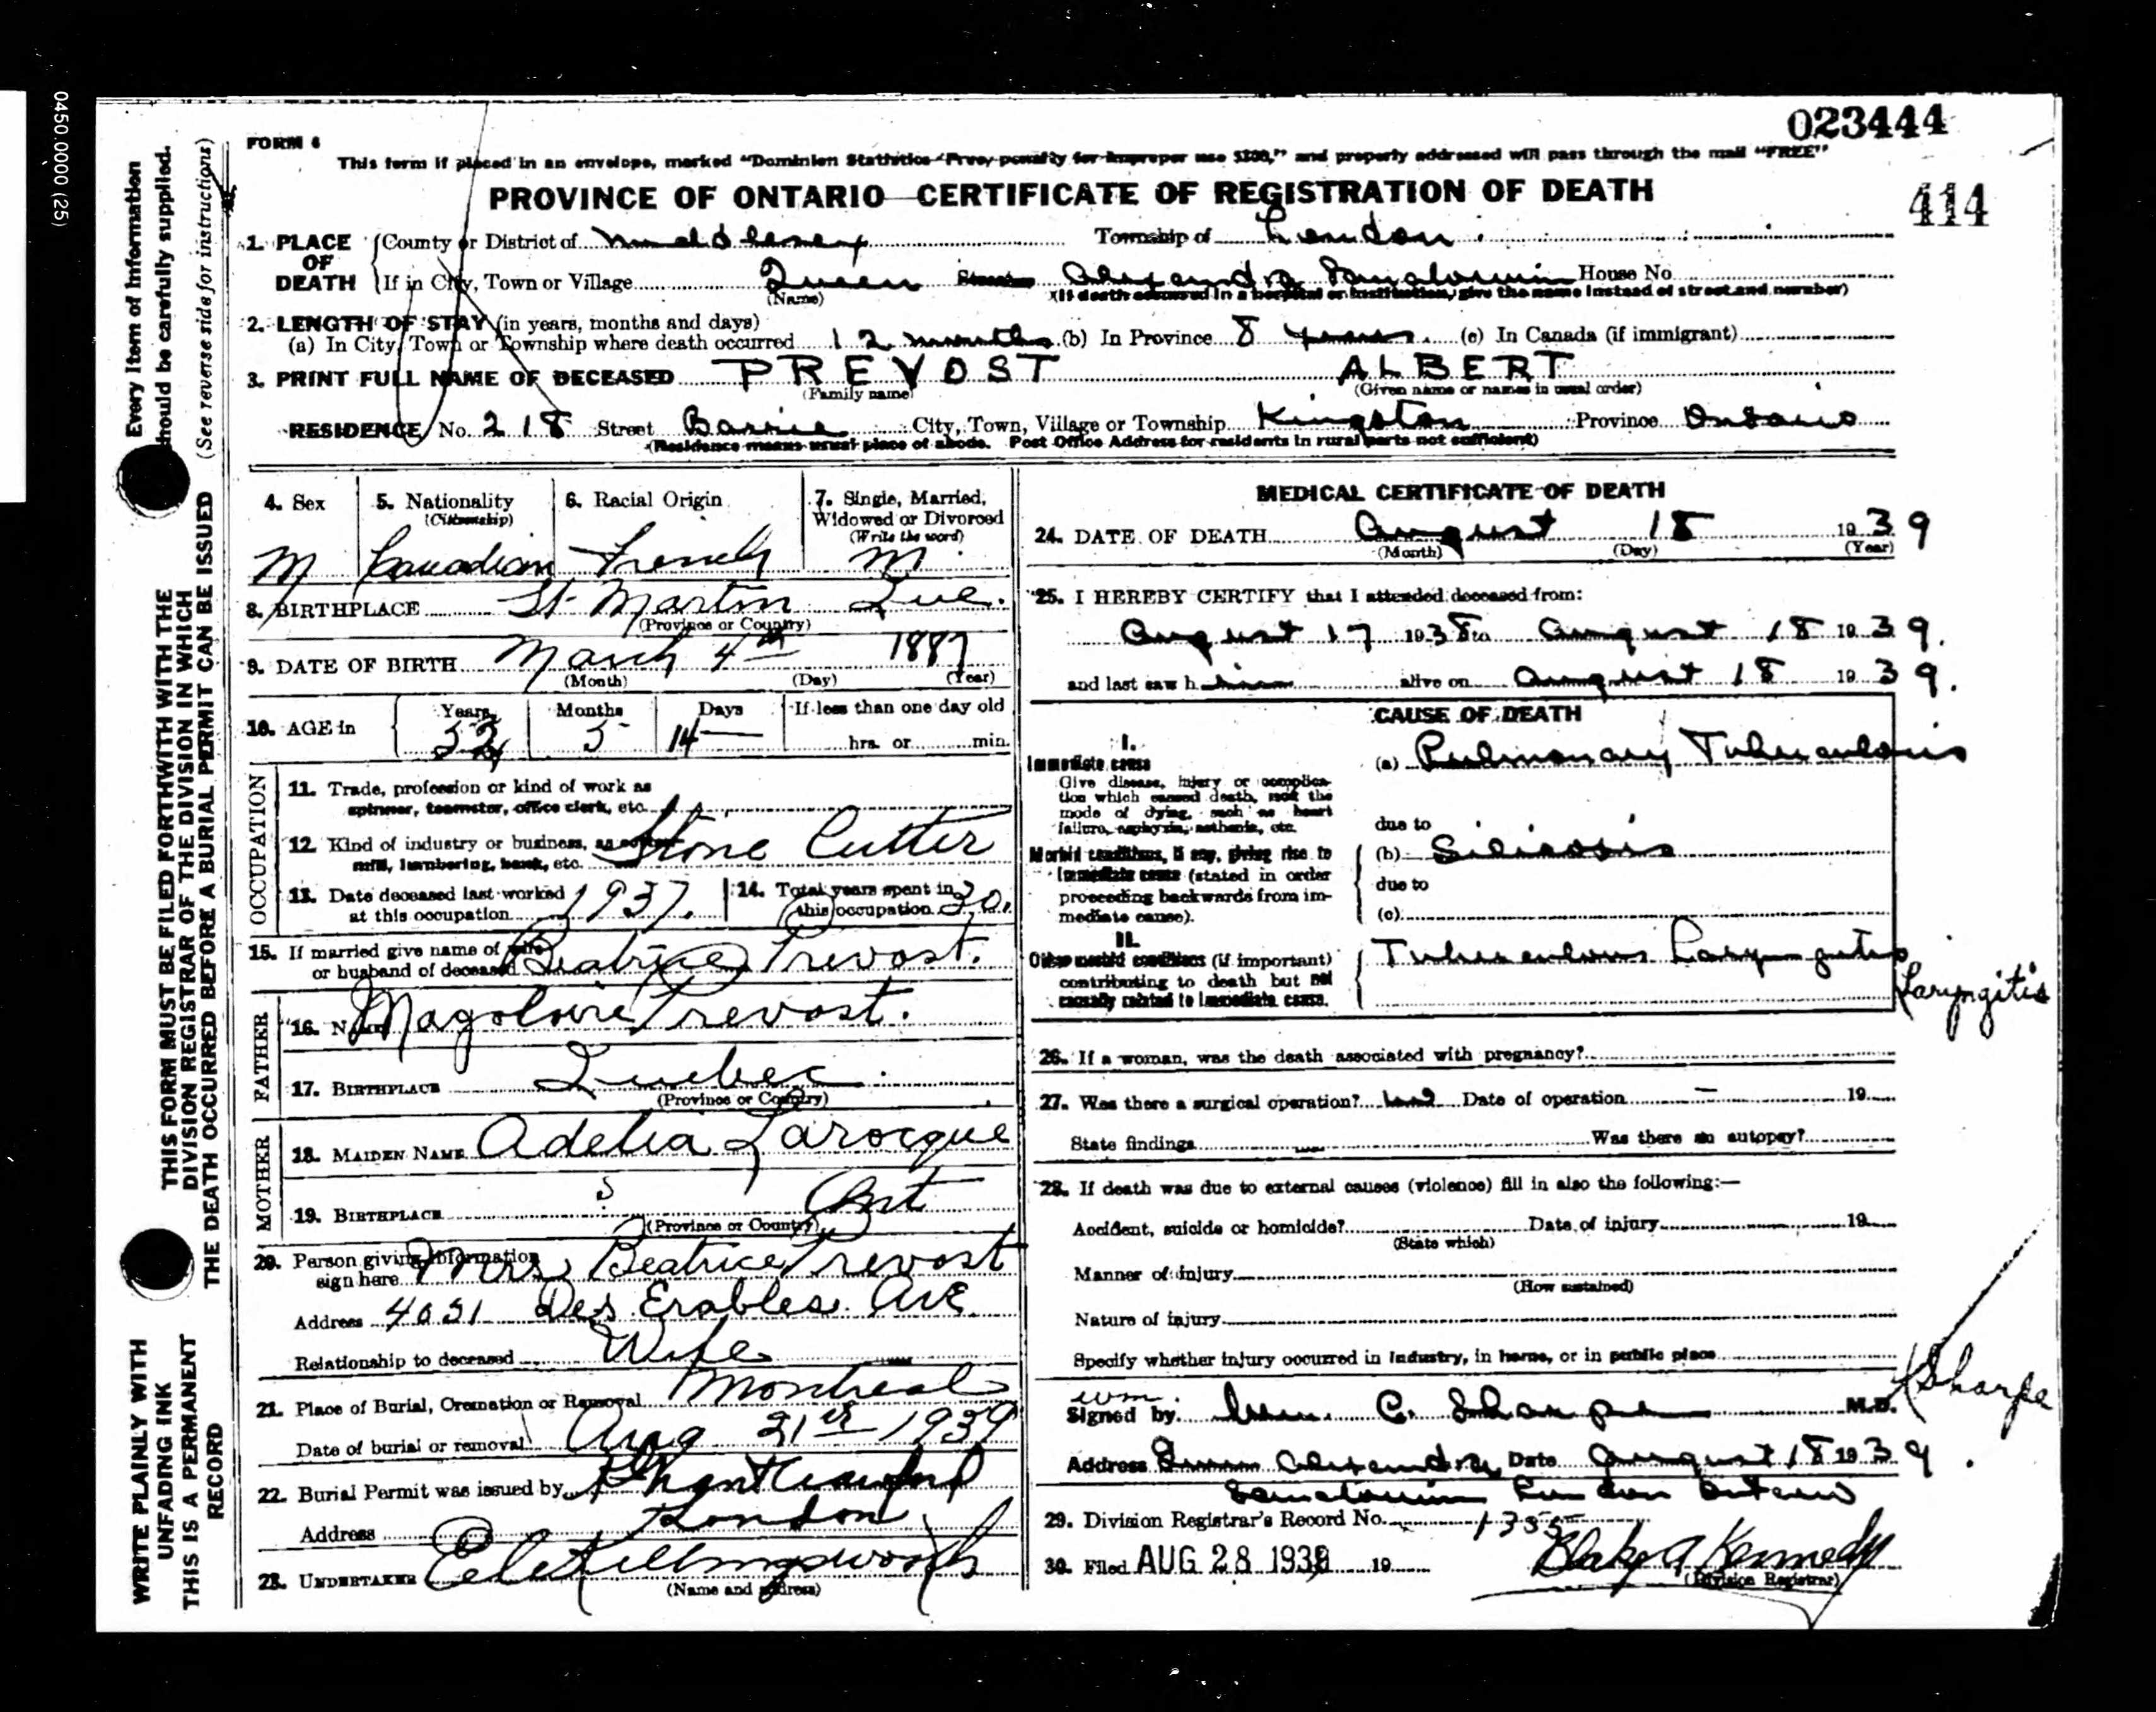 023444
414
0450.0000 (25)
FORM 6
This form if placed in an envelope, marked "Dominion Statistics—Free, penalty for improper use $300," and properly addressed will pass through the mail "FREE"
PROVINCE OF ONTARIO—CERTIFICATE OF REGISTRATION OF DEATH
1. PLACE OF DEATH County or District of Middlesex Township of London
If in City, Town or Village Queen Street Alexandra Sanatorium House No.
(Name) (If death occurred in a hospital or institution, give the name instead of street and number)
2. LENGTH OF STAY (in years, months and days)
(a) In City, Town or Township where death occurred 12 months (b) In Province 8 years (c) In Canada (if immigrant)
3. PRINT FULL NAME OF DECEASED PREVOST ALBERT
(Family name) (Given name or names in usual order)
RESIDENCE No. 218 Street Barrie City, Town, Village or Township Kingston Province Ontario
(Residence means usual place of abode. Post Office Address for residents in rural parts not sufficient)
4. Sex 5. Nationality (Citizenship) 6. Racial Origin 7. Single, Married, Widowed or Divorced (Write the word)
M Canadian French M
8. BIRTHPLACE St. Martin Que.
(Province or Country)
9. DATE OF BIRTH March 4th 1887
(Month) (Day) (Year)
10. AGE in Years Months Days If less than one day old
52 5 14 hrs. or min.
OCCUPATION
11. Trade, profession or kind of work as
spinner, teamster, office clerk, etc.
12. Kind of industry or business, as cotton Stone Cutter
mill, lumbering, bank, etc.
13. Date deceased last worked at this occupation 1937. 14. Total years spent in this occupation 20.
15. If married give name of wife or husband of deceased Beatrice Prevost.
FATHER
16. NAME Magoloire Prevost.
17. BIRTHPLACE Quebec
(Province or Country)
MOTHER
18. MAIDEN NAME Adelia Larocque
19. BIRTHPLACE Ont
(Province or Country)
20. Person giving information sign here Mrs Beatrice Prevost
Address 4031 Des Erables Ave
Relationship to deceased Wife
21. Place of Burial, Cremation or Removal Montreal
Date of burial or removal Aug 21st 1939
22. Burial Permit was issued by
Address London
23. UNDERTAKER
(Name and address)
MEDICAL CERTIFICATE OF DEATH
24. DATE OF DEATH August 18 1939
(Month) (Day) (Year)
25. I HEREBY CERTIFY that I attended deceased from:
August 17 1938 to August 18 1939.
and last saw him alive on August 18 1939.
CAUSE OF DEATH
I.
Immediate cause (a) Pulmonary Tuberculosis
Give disease, injury or complication which caused death, not the mode of dying, such as heart failure, asphyxia, asthenia, etc.
due to
Morbid conditions, if any, giving rise to immediate cause (stated in order proceeding backwards from immediate cause).
(b) Silicosis
due to
(c)
II.
Other morbid conditions (if important) contributing to death but not causally related to immediate cause.
Tuberculous Laryngitis
Laryngitis
26. If a woman, was the death associated with pregnancy?
27. Was there a surgical operation? Date of operation — 19
State findings Was there an autopsy?
28. If death was due to external causes (violence) fill in also the following:—
Accident, suicide or homicide? Date of injury 19
(State which)
Manner of injury
(How sustained)
Nature of injury
Specify whether injury occurred in industry, in home, or in public place
Wm.
Signed by: Wm. C. Sharpe M.D. Sharpe
Address Queen Alexandra Date August 18 1939.
Sanatorium London Ontario
29. Division Registrar's Record No. 1355
30. Filed AUG 28 1939 19 Blake A Kennedy
(Division Registrar)
Every item of information should be carefully supplied.
(See reverse side for instructions)
THIS FORM MUST BE FILED FORTHWITH WITH THE DIVISION REGISTRAR OF THE DIVISION IN WHICH THE DEATH OCCURRED BEFORE A BURIAL PERMIT CAN BE ISSUED
WRITE PLAINLY WITH UNFADING INK
THIS IS A PERMANENT RECORD